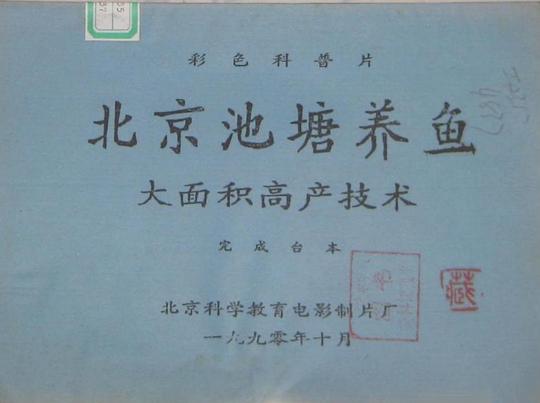 彩色科普片
北京池塘养鱼
大面积高产技术
完成台本
藏
北京科学教育电影制片厂
一九九零年十月